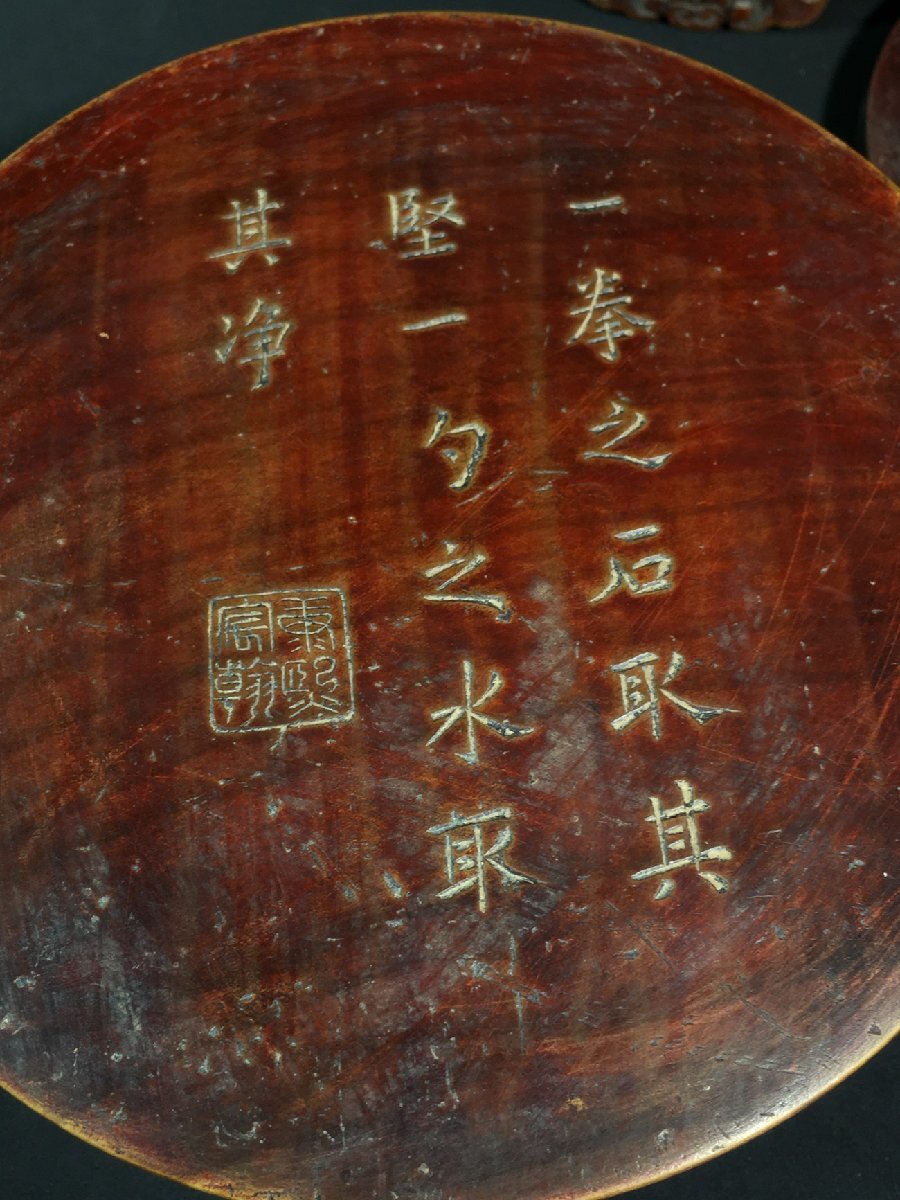 一拳之石取其
堅一勺之水取
其净
康熙
宸翰